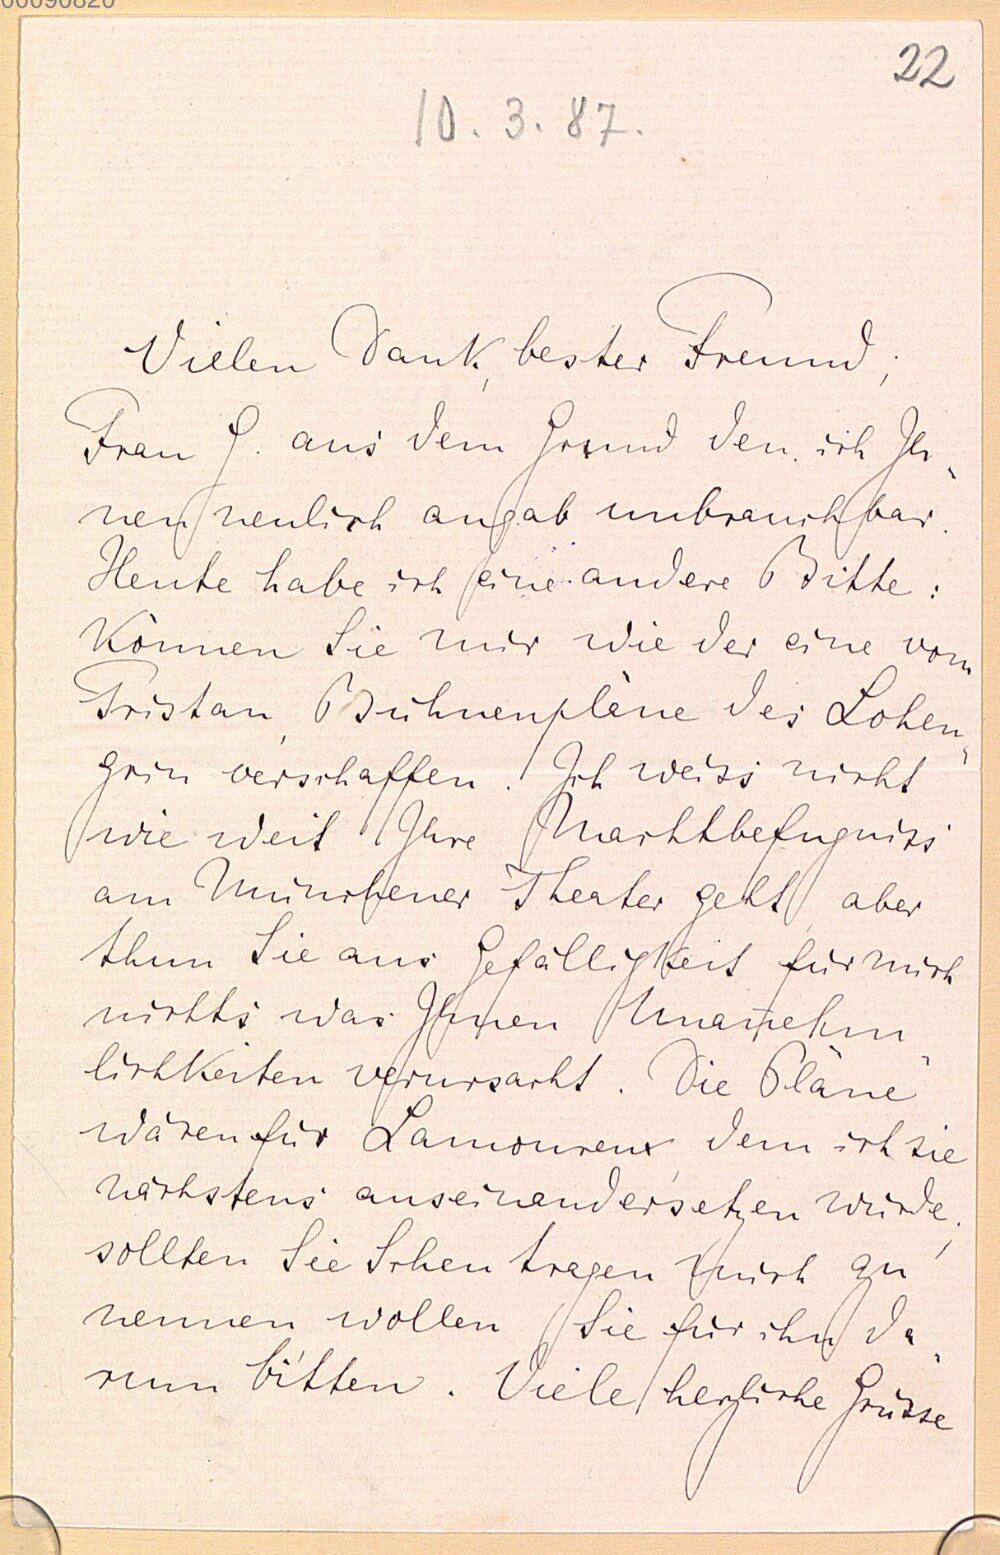 00090820
22
10. 3. 87.
Vielen Dank, bester Freund;
Frau G. aus dem Grund den ich Ih-
nen neulich angab unbrauchbar.
Heute habe ich eine andere Bitte:
Können Sie mir wie der eine vom
Tristan, Bühnenpläne des Lohen-
grin verschaffen. Ich weiss nicht
wie weit Ihre Machtbefugniss
am Münchener Theater geht, aber
thun Sie aus Gefälligkeit für mich
nichts was Ihnen Unannehm-
lichkeiten verursacht. Die Pläne
wären für Lamoureux, dem ich sie
nächstens auseinandersetzen würde;
sollten Sie Scheu tragen mich zu
nennen wollen Sie für ihn da-
rum bitten. Viele herzliche Grüsse